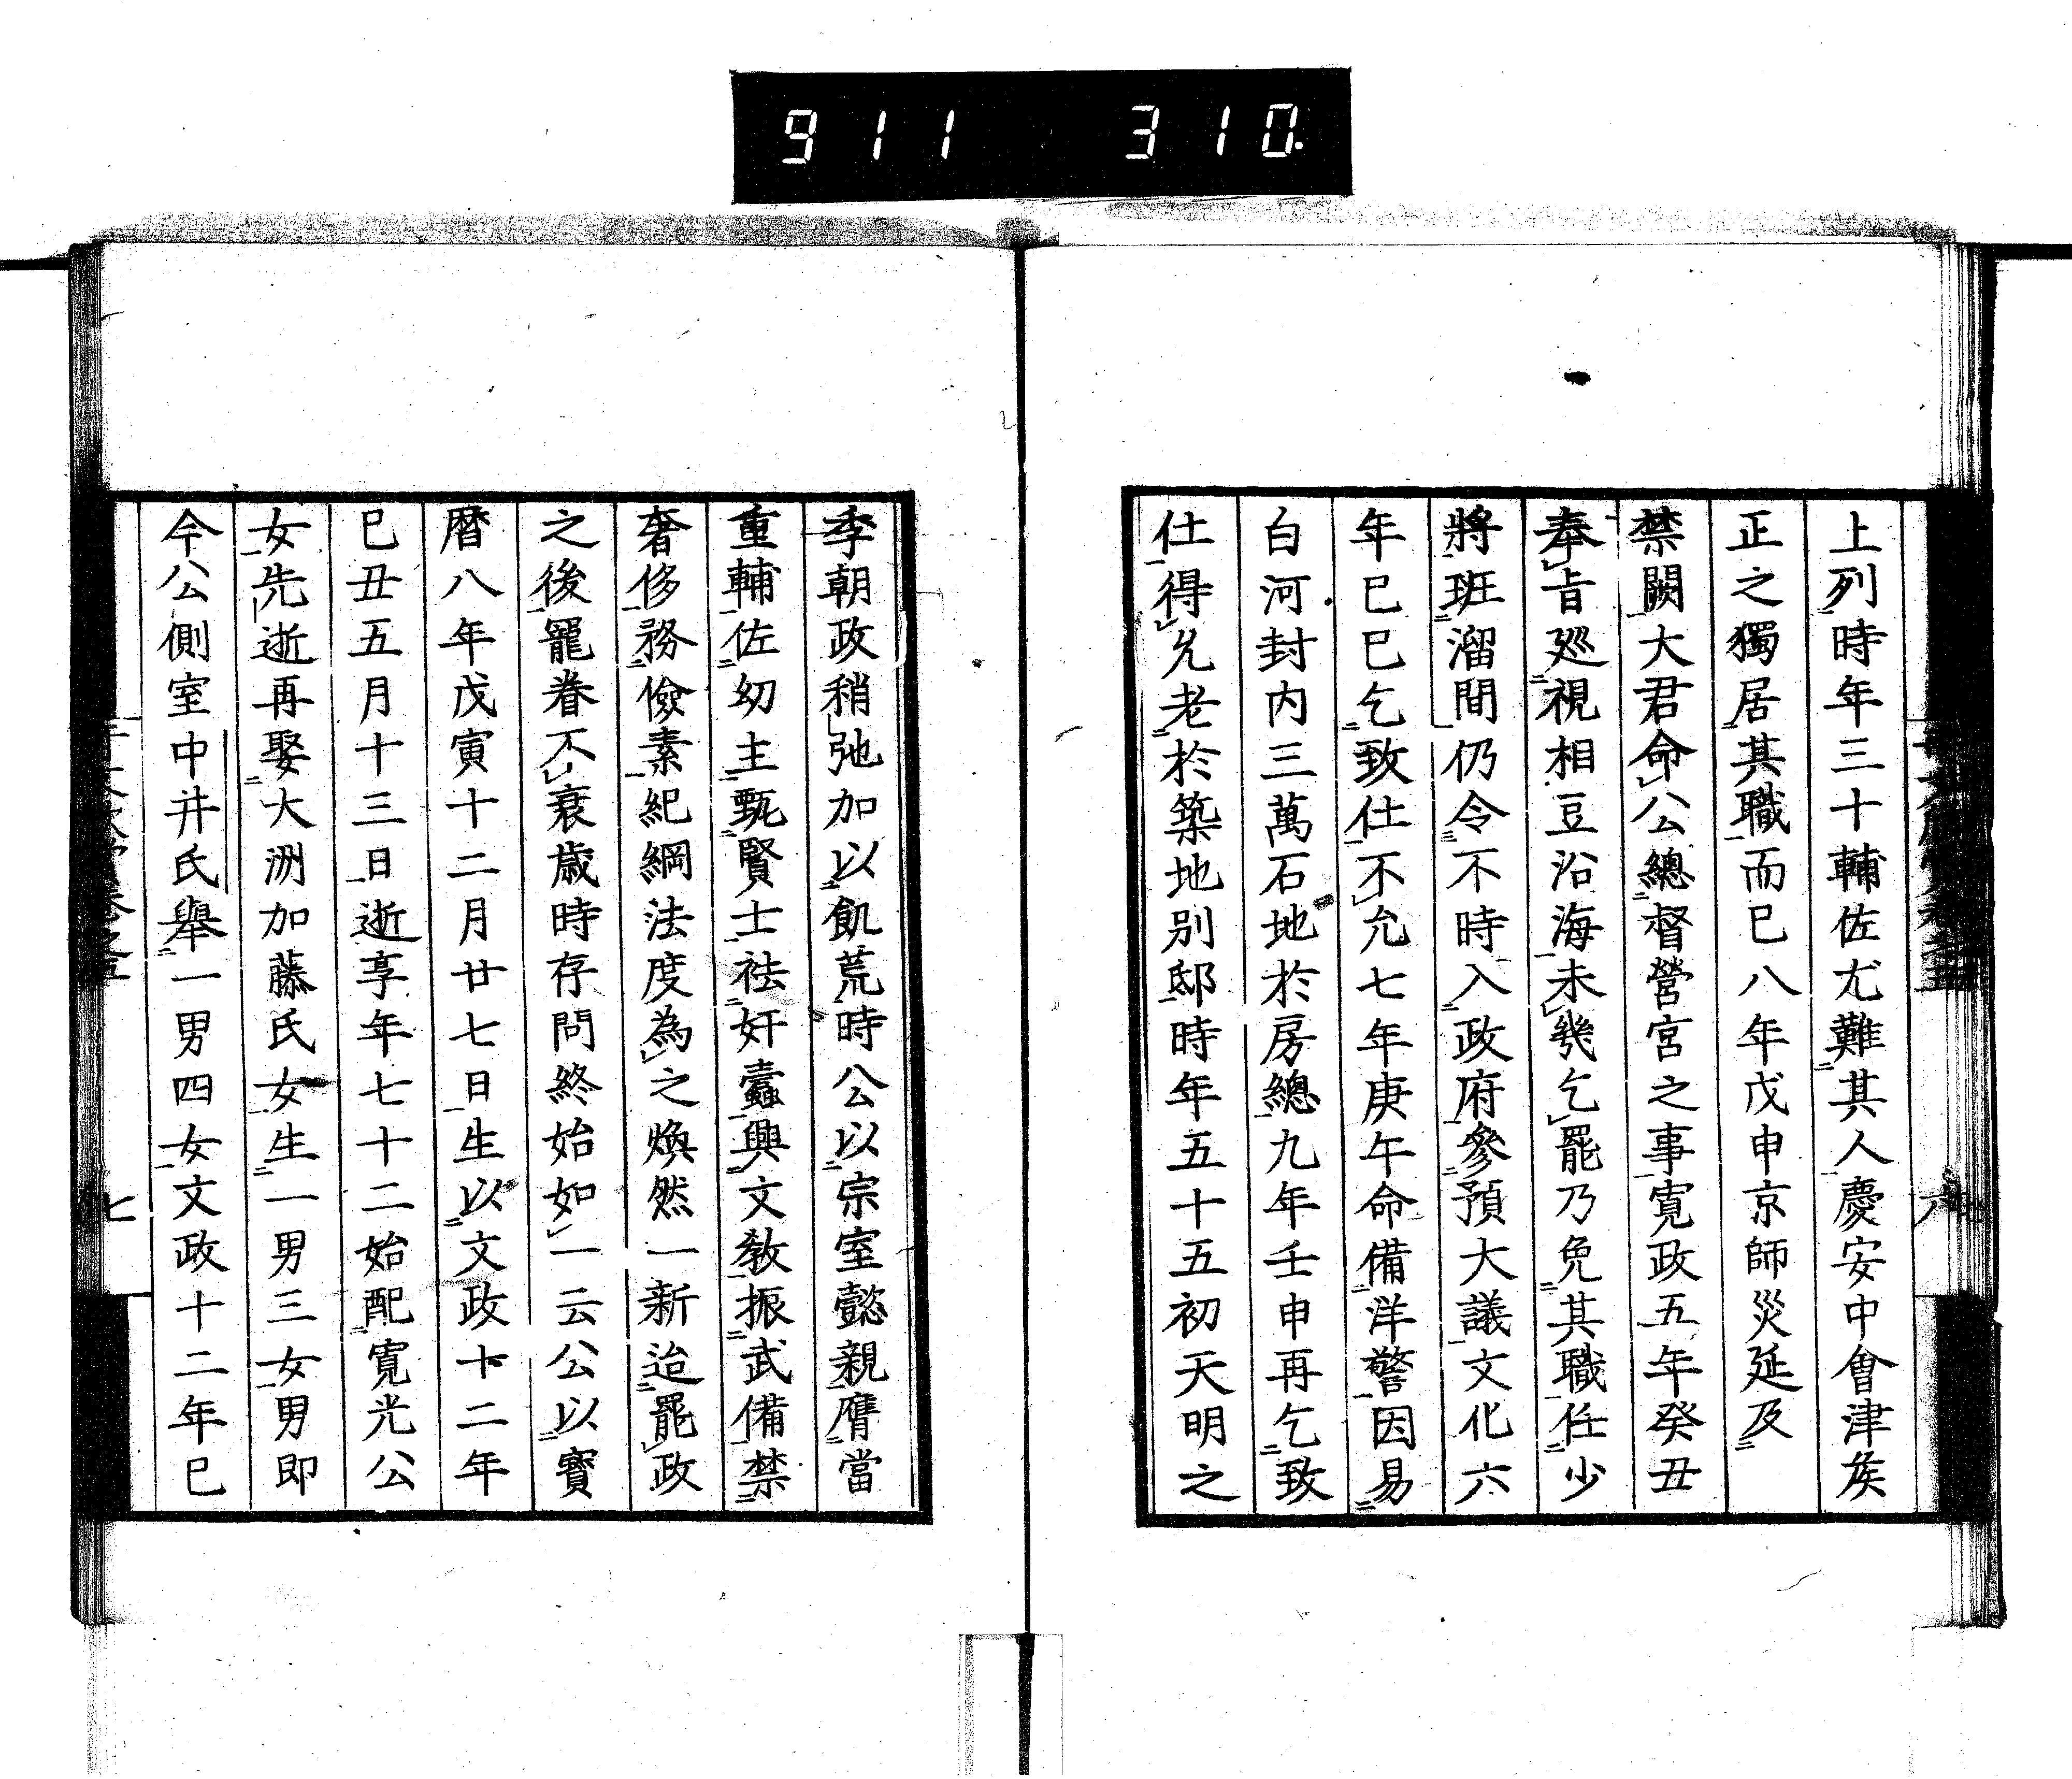 911 310.
上列時年三十輔佐尤難其人慶安中會津矦
正之獨居其職而已八年戊申京師災延及
禁闕大君命公總督營宮之事寬政五年癸丑
奉旨巡視相豆沿海未幾乞罷乃免其職任少
將班溜間仍令不時入政府參預大議文化六
年巳巳乞致仕不允七年庚午命備洋警因易
白河封内三萬石地於房總九年壬申再乞致
仕得允老於築地別邸時年五十五初天明之
季朝政稍弛加以飢荒時公以宗室懿親膺當
重輔佐幼主甄賢士祛奸蠹興文教振武備禁
奢侈務儉素紀綱法度為之煥然一新迨罷政
之後寵眷不衰歳時存問終始如一云公以寳
暦八年戊寅十二月廿七日生以文政十二年
巳丑五月十三日逝享年七十二始配寛光公
女先逝再娶大洲加藤氏女生一男三女男即
今公側室中井氏舉一男四女文政十二年巳
七